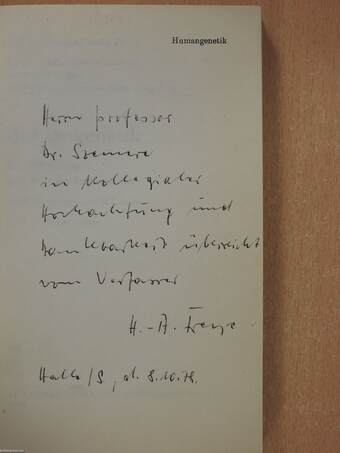 Humangenetik
Herrn Professor
Dr. Szemere
in kollegialer
Hochachtung und
Dankbarkeit überreicht
vom Verfasser
H.-A. Freye
Halle/S, d. 8.10.78.